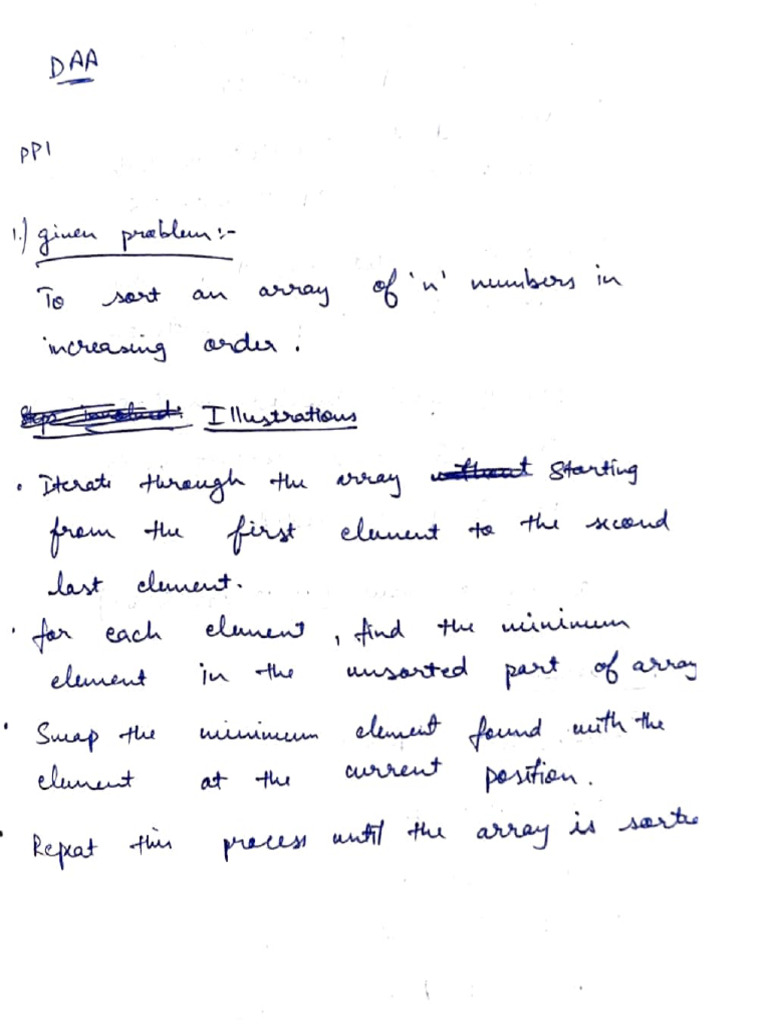 DAA
PP1
1.) given problem :-
To sort an array of 'n' numbers in
increasing order.
Illustrations
• Iterate through the array without starting
from the first element to the second
last element.
• for each element, find the minimum
element in the unsorted part of array
• Swap the minimum element found with the
element at the current position.
• Repeat this process until the array is sorte